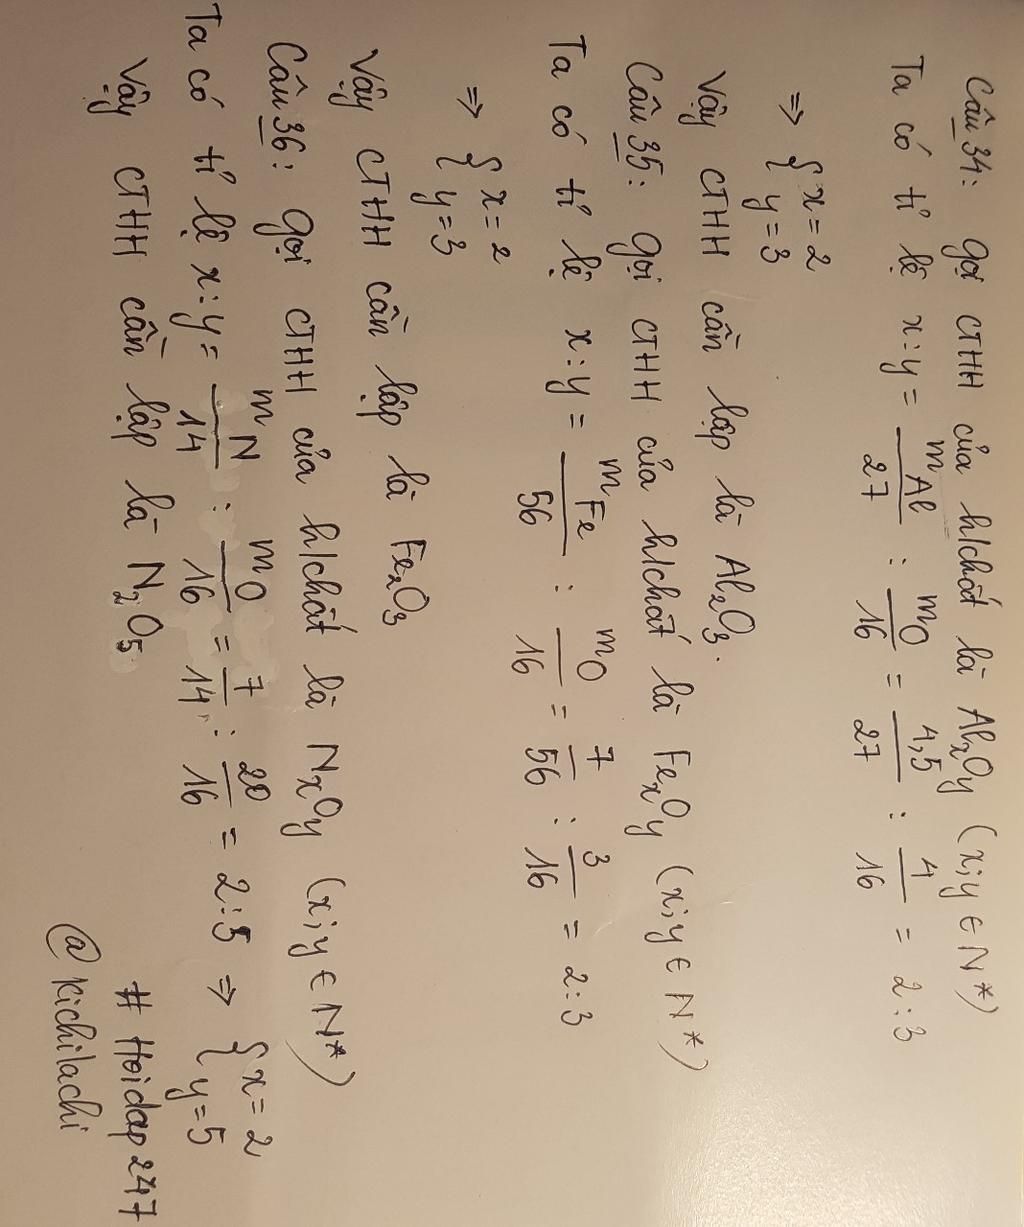 Câu 34: Gọi CTHH của h/chất là AlxOy (x;y ∈ N*)
Ta có tỉ lệ x:y = mAl/27 : mO/16 = 4,5/27 : 4/16 = 2:3
⇒ { x=2
y=3
Vậy CTHH cần lập là Al2O3.
Câu 35: Gọi CTHH của h/chất là FexOy (x;y ∈ N*)
Ta có tỉ lệ x:y = mFe/56 : mO/16 = 7/56 : 3/16 = 2:3
⇒ { x=2
y=3
Vậy CTHH cần lập là Fe2O3
Câu 36: Gọi CTHH của h/chất là NxOy (x;y ∈ N*)
Ta có tỉ lệ x:y = mN/14 : mO/16 = 7/14 : 20/16 = 2:5 ⇒ { x=2
y=5
Vậy CTHH cần lập là N2O5
# Hoidap247
@kichilachi